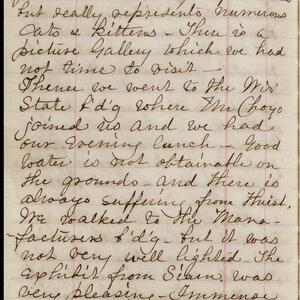 but really represents numerous
Cats & Kittens - There is a
picture Gallery which we had
not time to visit -
Thence we went to the Wis
State b'd'g where Mr Choyo
joined us and we had
our Evening lunch - Good
water is not obtainable on
the grounds - and there is
always suffering from thirst.
We walked to the Manu-
facturers b'd'g - but it was
not very well lighted. The
exhibit from Siam was
very pleasing - Immense